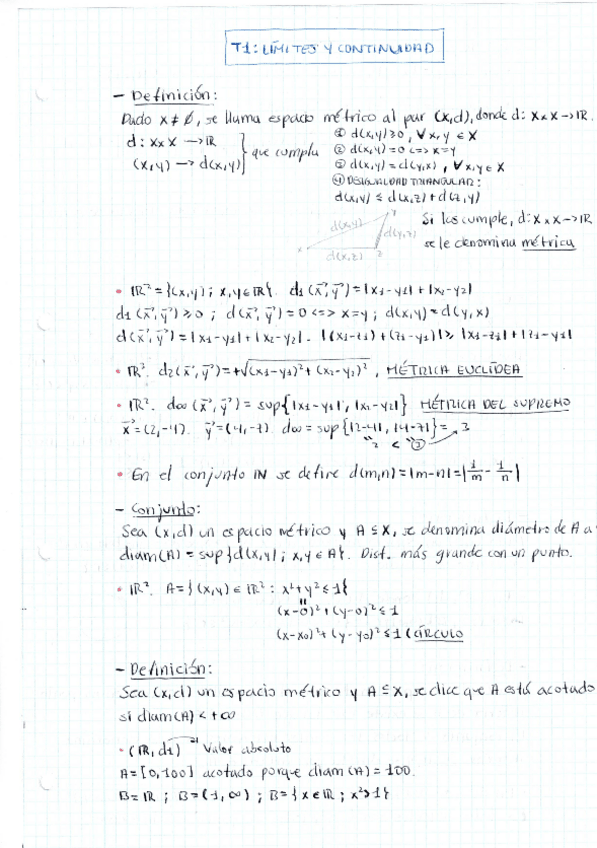 T1: LÍMITES Y CONTINUIDAD
- Definición:
Dado X ≠ ∅, se llama espacio métrico al par (X,d), donde d: X×X → IR.
d: X×X → IR
(x,y) → d(x,y)
que cumpla
① d(x,y) ≥ 0, ∀x,y ∈ X
② d(x,y) = 0 <=> x=y
③ d(x,y) = d(y,x), ∀x,y ∈ X
④ DESIGUALDAD TRIANGULAR:
d(x,y) ≤ d(x,z) + d(z,y)
d(x,y) y d(y,z)
x d(x,z) z
Si los cumple, d: X×X → IR
se le denomina métrica
• IR² = {(x,y); x,y ∈ IR}. d1 (x⃗, y⃗) = |x1-y1| + |x2-y2|
d1 (x⃗, y⃗) ≥ 0 ; d(x⃗, y⃗) = 0 <=> x=y ; d(x,y) = d(y,x)
d(x⃗, y⃗) = |x1-y1| + |x2-y2|. |(x1-z1) + (z1-y1)| ≥ |x1-z1| + |z1-y1|
• IR². d2(x⃗, y⃗) = +√(x1-y1)² + (x2-y2)², MÉTRICA EUCLÍDEA
• IR². d∞ (x⃗, y⃗) = sup{|x1-y1|, |x2-y2|} MÉTRICA DEL SUPREMO
x⃗ = (2,-4). y⃗ = (4,-7). d∞ = sup{|2-4|, |4-7|} = 3
2 < ③
• En el conjunto IN se define d(m,n) = |m-n| = |1/m - 1/n|
- Conjunto:
Sea (x,d) un espacio métrico y A ⊆ X, se denomina diámetro de A a
diam(A) = sup{d(x,y); x,y ∈ A}. Dist. más grande con un punto.
• IR². A = {(x,y) ∈ IR² : x²+y² ≤ 1}
"
(x-0)² + (y-0)² ≤ 1
(x-x0)² + (y-y0)² ≤ 1 (CÍRCULO
- Definición:
Sea (x,d) un espacio métrico y A ⊆ X, se dice que A está acotado
si diam(A) < +∞
• (IR, d1) → Valor absoluto
A = [0,100] acotado porque diam(A) = 100.
B = IR ; B = (1,∞) ; B = {x ∈ IR ; x² > 1}